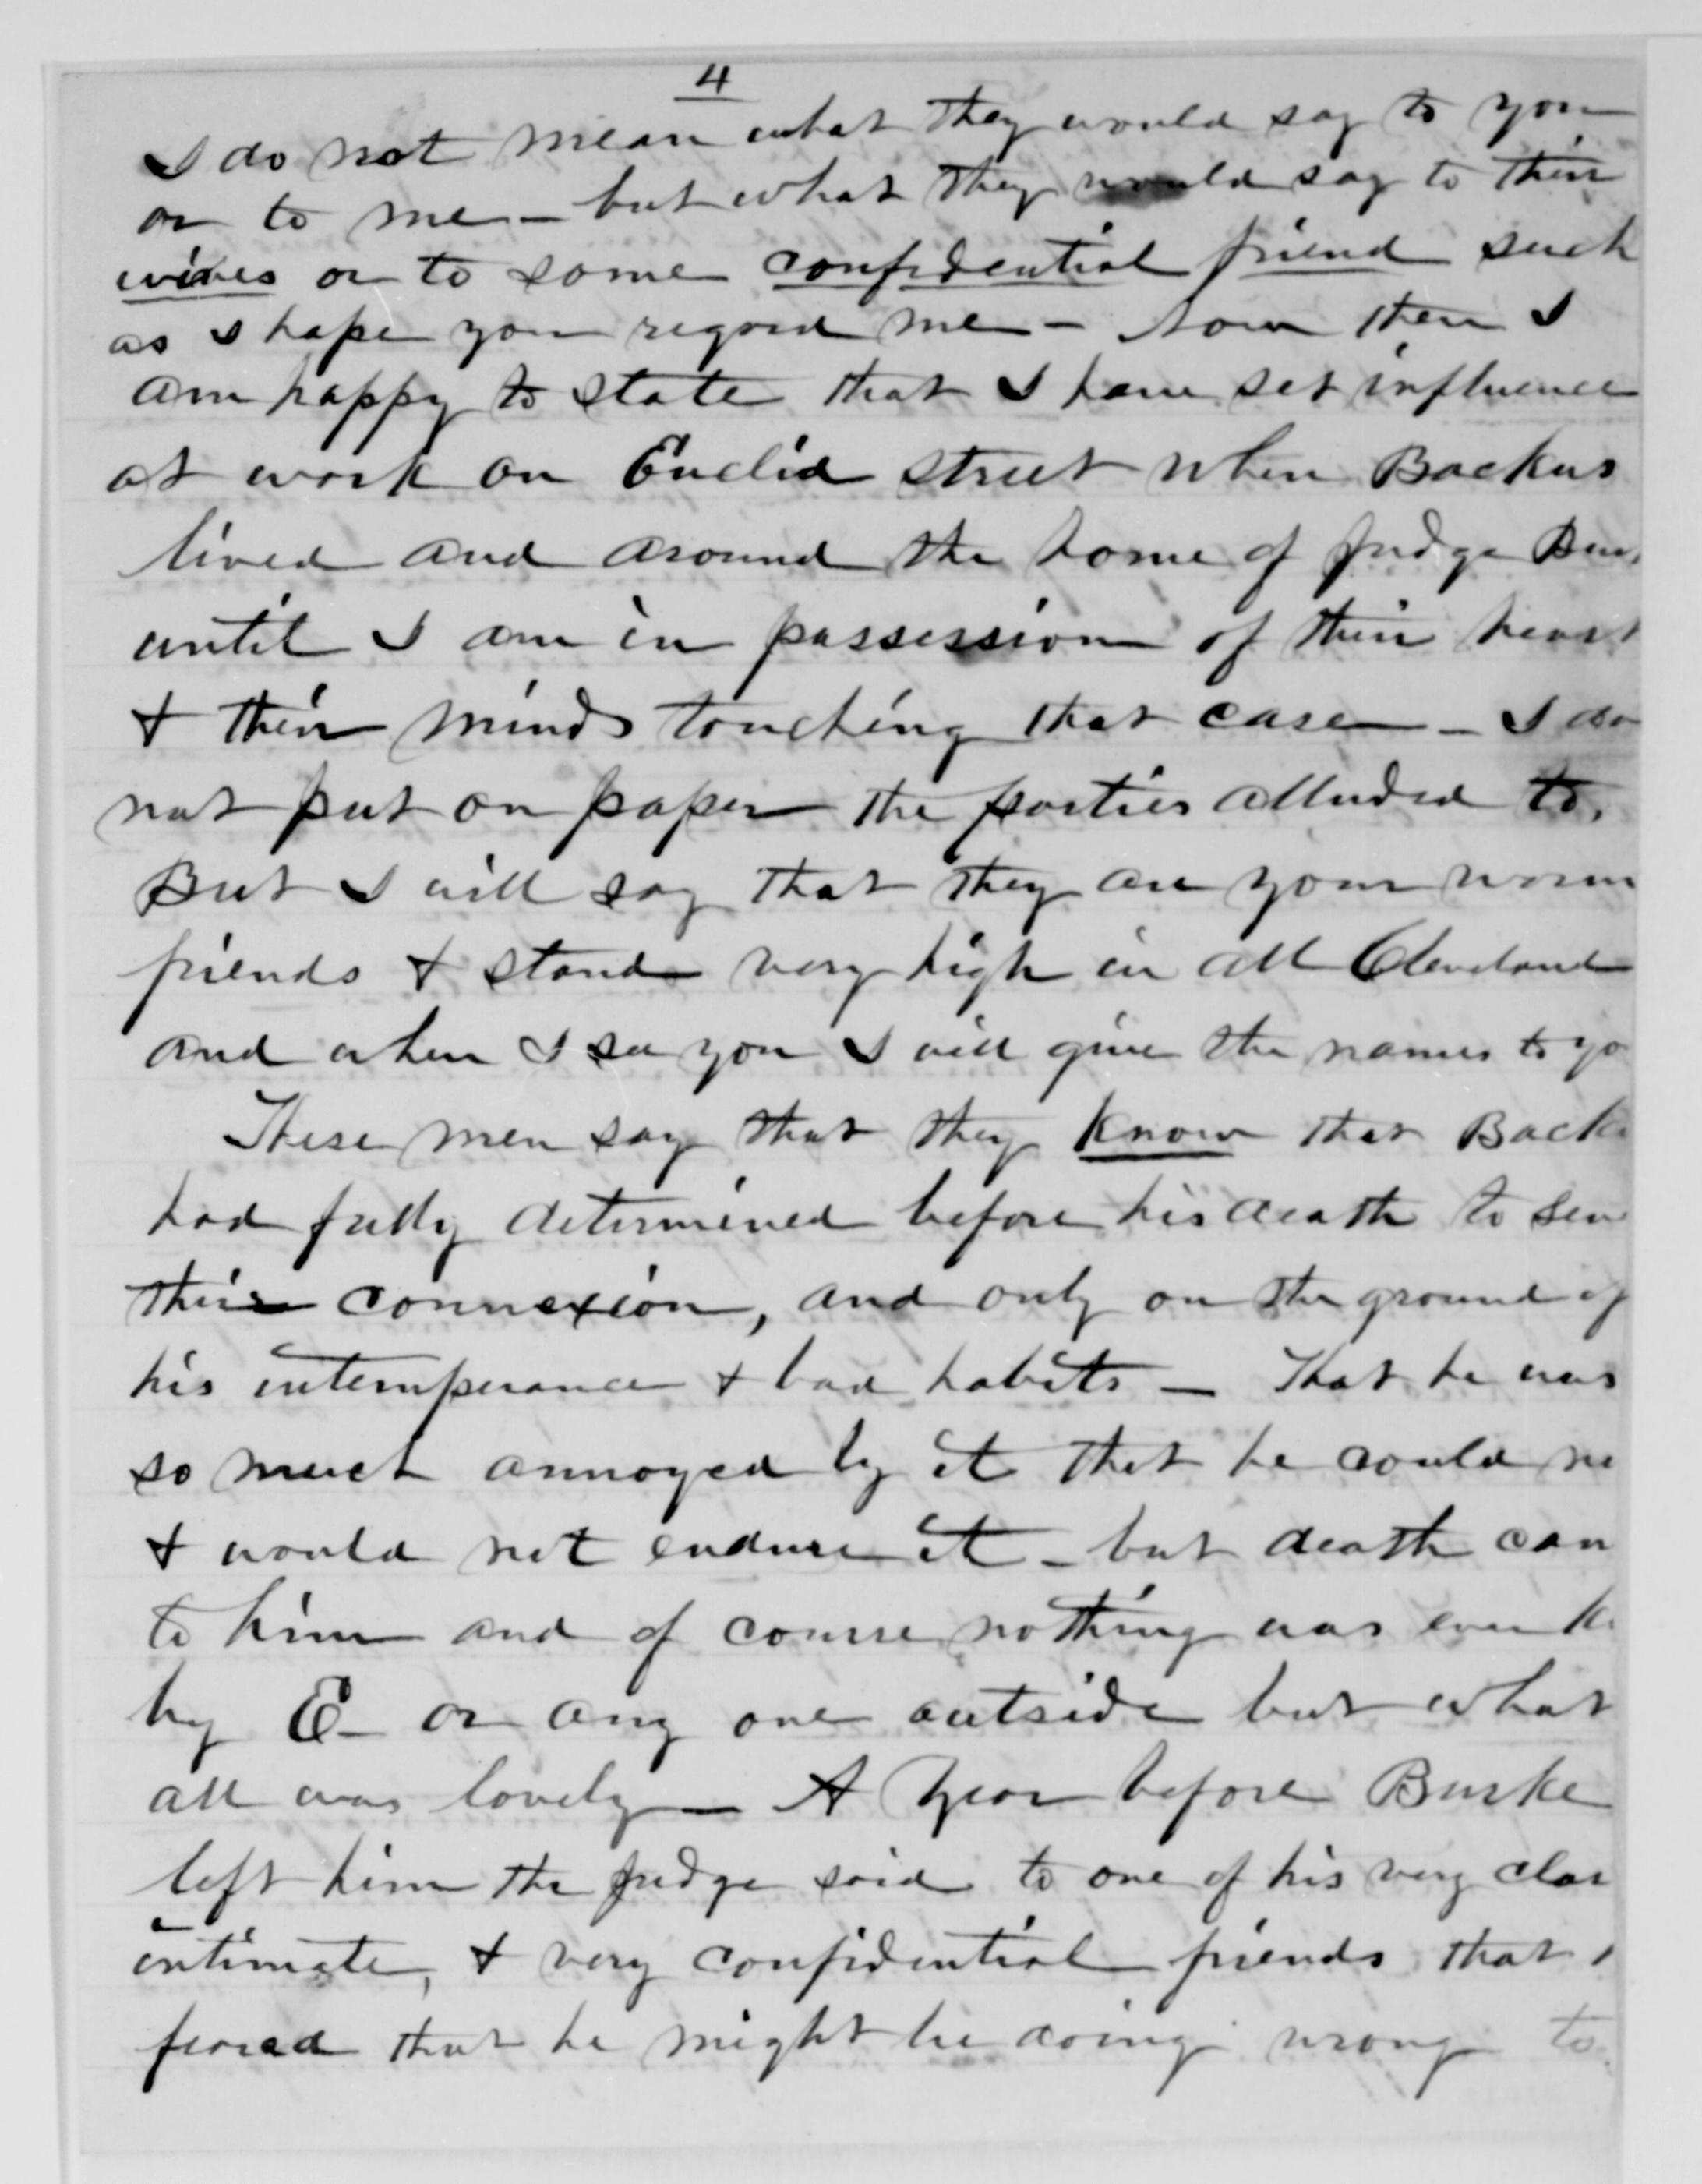 4
I do not mean what they would say to you
or to me - but what they would say to their
wives or to some confidential friend such
as I hope you regard me - Now then I
am happy to state that I have set influence
at work on Euclid street when Backus
lived and around the home of Judge
until I am in possession of their heart
& their minds touching that case - I do
not put on paper the parties alluded to.
But I will say that they are your warm
friends & stand very high in all Cleveland
and when I see you I will give the names to yo
These men say that they know that Back
had fully determined before his death to sev
their connexion, and only on the ground of
his intemperance & bad habits - That he was
so much annoyed by it that he could no
& would not endure it - but death cam
to him and of course nothing was ever k
by E- or any one outside but what
all was lovely - A year before Burke
left him the Judge said to one of his very clos
intimate, & very confidential friends that
feared that he might be doing wrong to